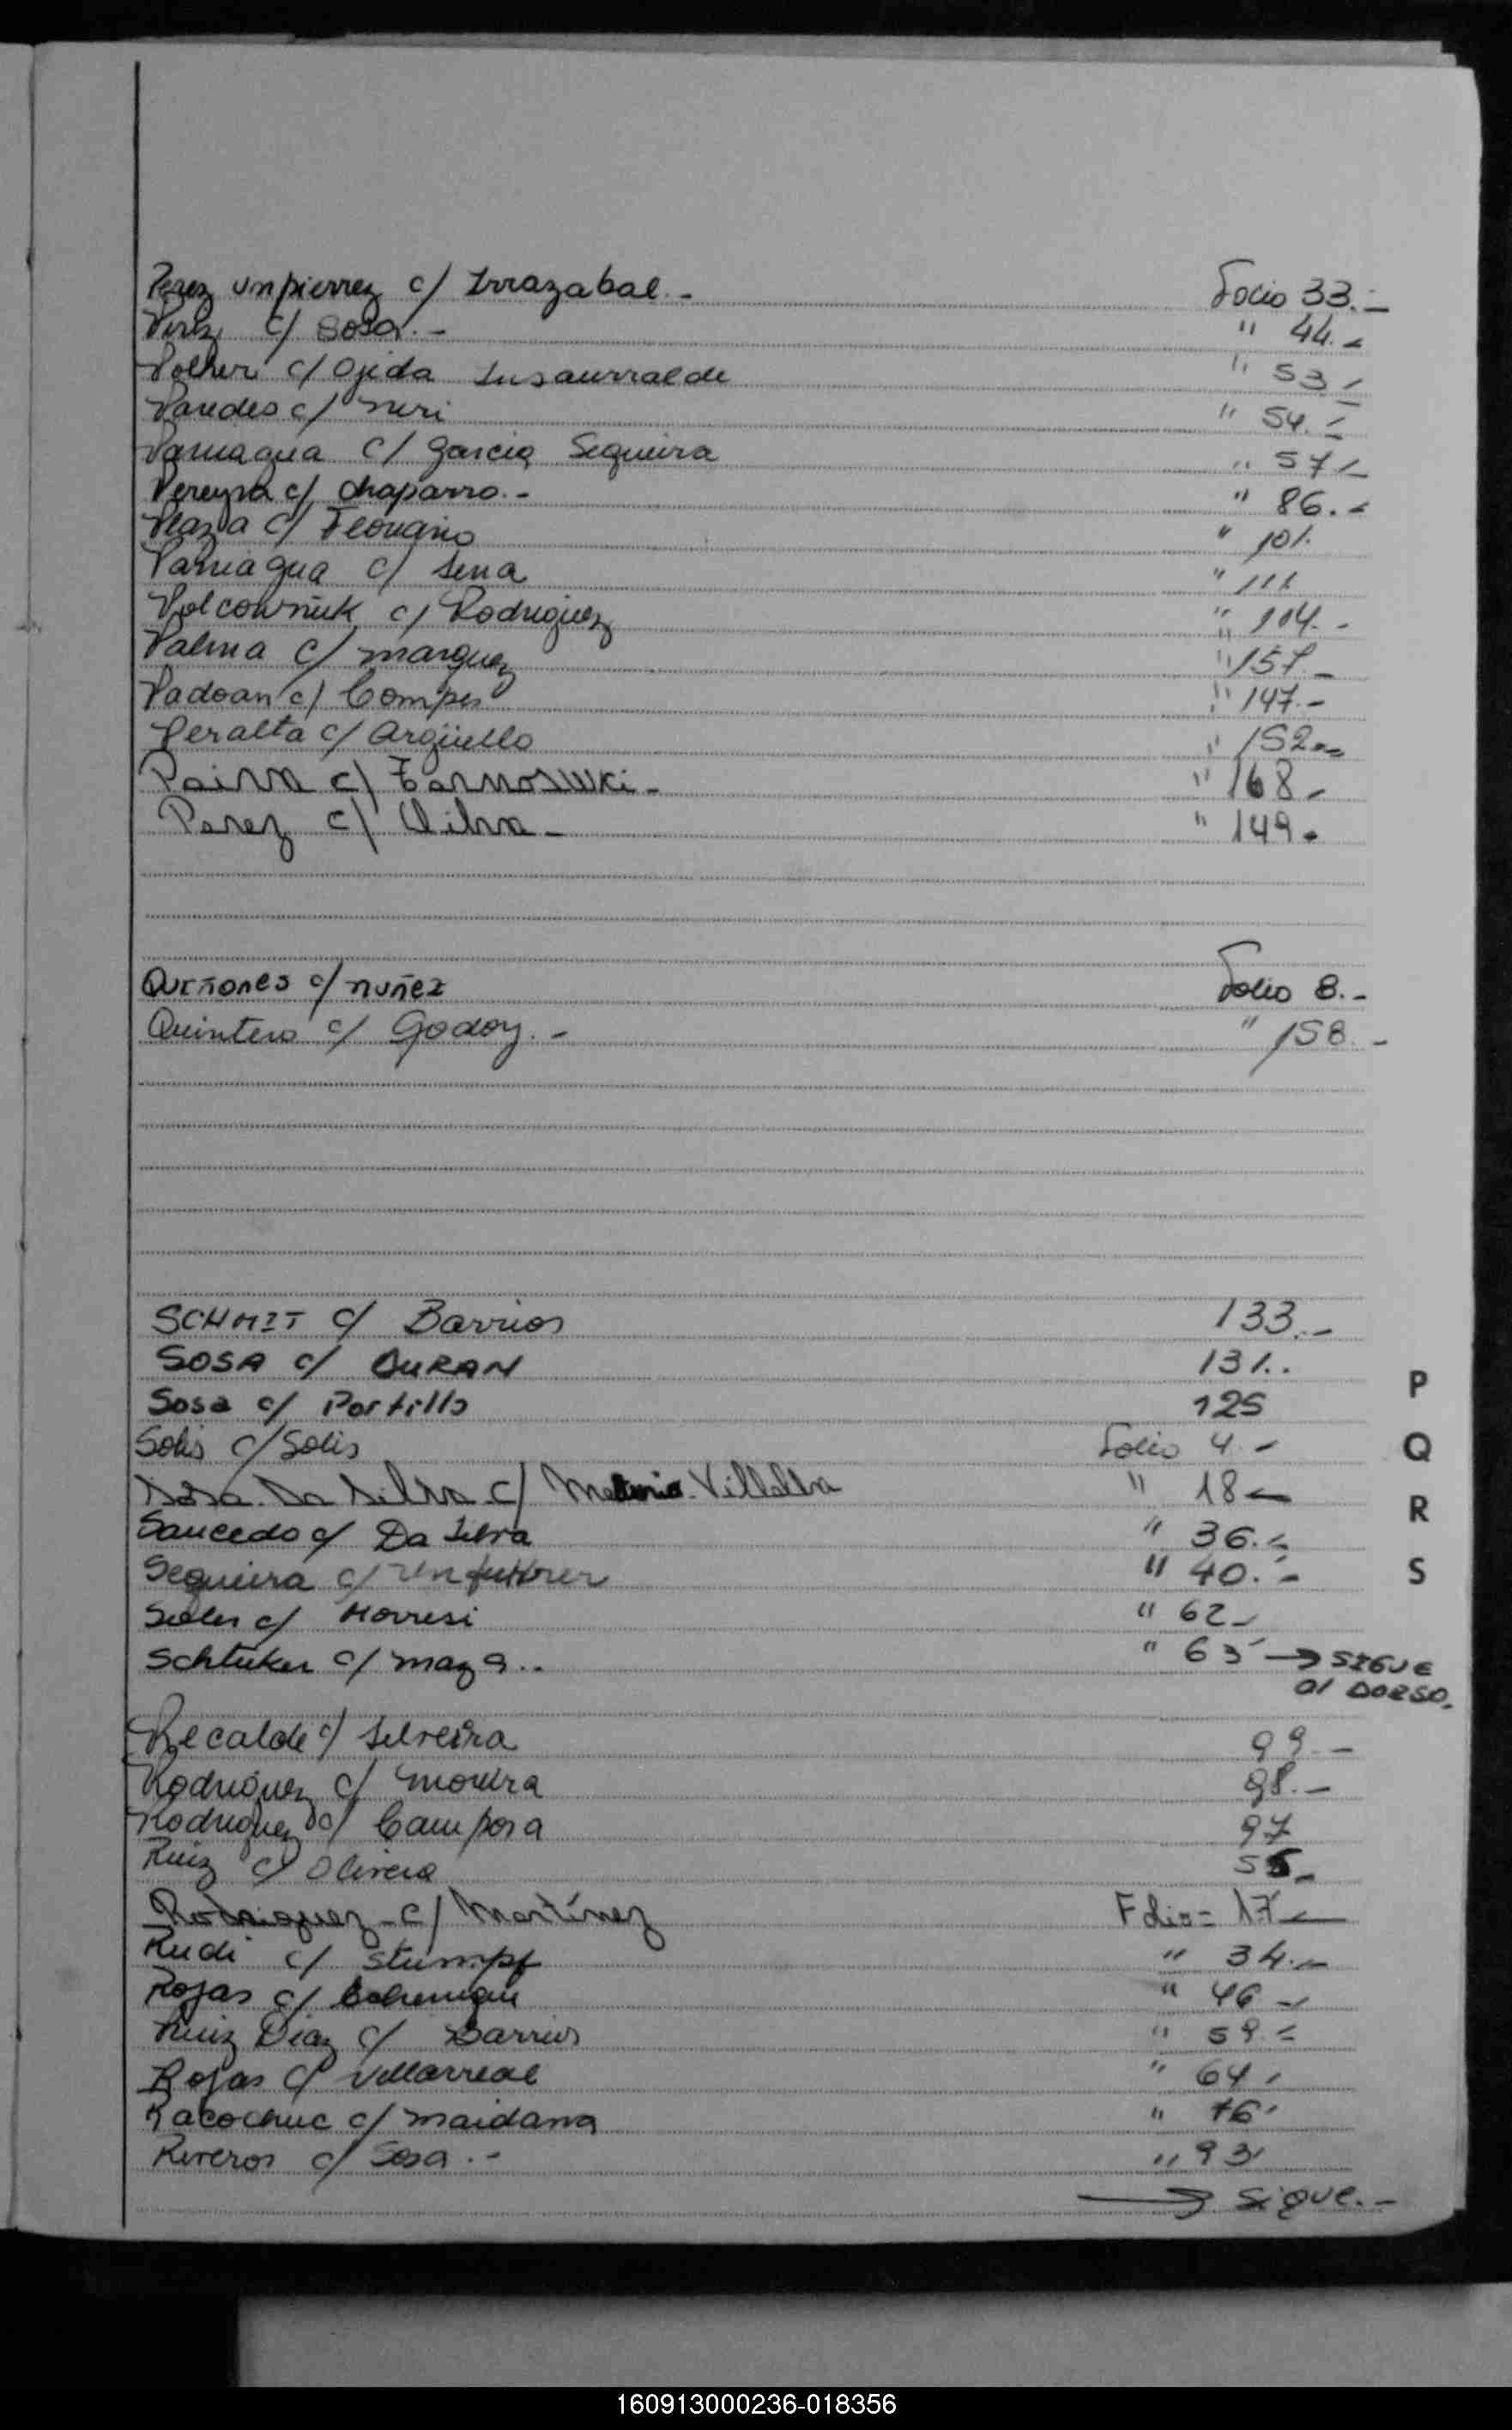 Perez Umpierrez c/ Irrazabal.- Folio 33.-
Perez c/ Sosa.- " 44.-
Polher c/ Ojeda Insaurralde " 53.-
Paredes c/ Neri " 54.-
Paniagua c/ Garcia Sequeira " 57.-
Pereyra c/ Chaparro.- " 86.-
Plaza c/ " 101.
Paniagua c/ Sena " 111.
Polcowñuk c/ Rodriguez " 104.-
Palma c/ Marquez " 157.-
Padoan c/ Compes " 147.-
Peralta c/ Argüello " 152.-
Paiva c/ - " 168.-
Perez c/ Silva - " 149.
Quiñones c/ nuñez Folio 8.-
Quintero c/ Godoy.- " 158.-
SCHMIT c/ Barrios 133.-
SOSA c/ DURAN 131..
Sosa c/ Portillo 125
Solis c/ Solis Folio 4.-
Sosa Da Silva c/ Villalba " 18.-
Saucedo c/ Da Silva " 36.-
Sequeira c/ " 40.-
Soler c/ Morresi " 62.-
Schluker c/ maza.. " 63 → SIGUE
al DORSO.
P
Q
R
S
Recalde c/ Silveira 99.-
Rodriguez c/ Moreira 98.-
Rodriguez c/ Campora 97
Ruiz c/ Olivera 55.-
Rodriguez c/ Martínez Folio = 17.-
Rudi c/ Stumpf " 34.-
Rojas c/ " 46.-
Ruiz Diaz c/ Barrios " 59.-
Rojas c/ Villarreal " 64.
Racochuc c/ maidana " 76.
Riveros c/ Sosa.- " 93
→ Sigue.-
160913000236-018356